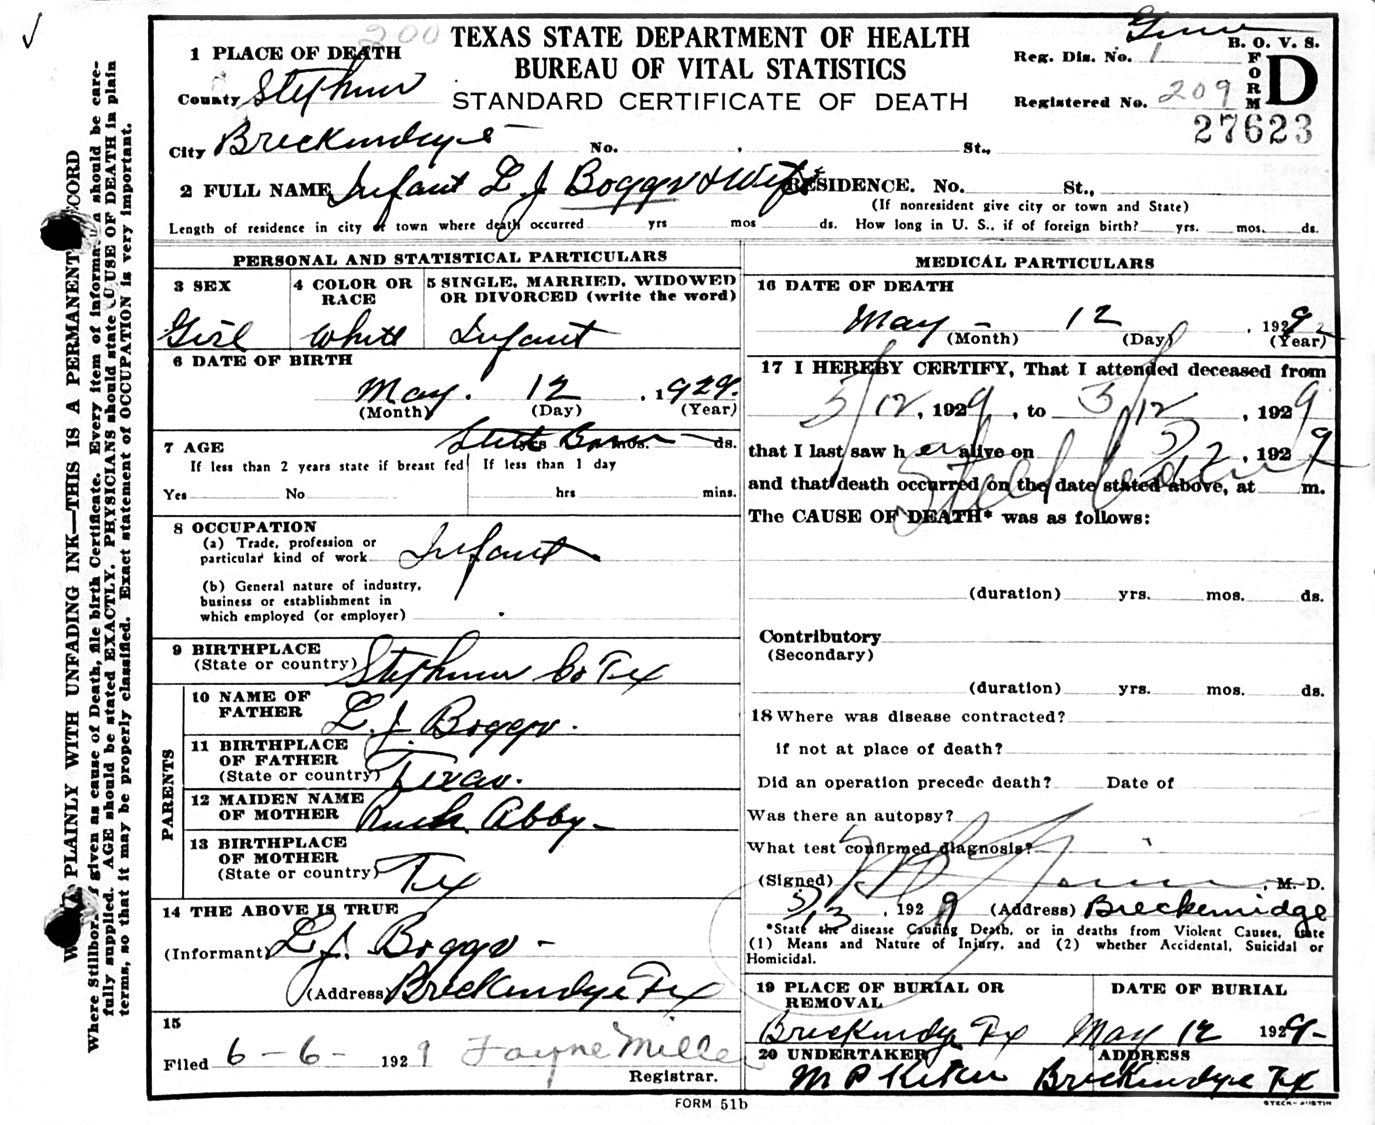 200
TEXAS STATE DEPARTMENT OF HEALTH
BUREAU OF VITAL STATISTICS
STANDARD CERTIFICATE OF DEATH
B. O. V. S.
FORM D
Reg. Dis. No. 1
Registered No. 209
27623
1 PLACE OF DEATH
County
City No. St.,
2 FULL NAME Infant L J Boggs & Wife RESIDENCE. No. St.,
(If nonresident give city or town and State)
Length of residence in city or town where death occurred yrs mos ds. How long in U. S., if of foreign birth? yrs. mos. ds.
PERSONAL AND STATISTICAL PARTICULARS
3 SEX
Girl
4 COLOR OR RACE
White
5 SINGLE, MARRIED, WIDOWED OR DIVORCED (write the word)
Infant
6 DATE OF BIRTH
May. 12, 1929.
(Month) (Day) (Year)
7 AGE Still Born yrs mos. ds.
If less than 2 years state if breast fed
Yes No
If less than 1 day
hrs mins.
8 OCCUPATION
(a) Trade, profession or
particular kind of work Infant
(b) General nature of industry,
business or establishment in
which employed (or employer)
9 BIRTHPLACE
(State or country) Co Tex
PARENTS
10 NAME OF
FATHER L. J. Boggs.
11 BIRTHPLACE
OF FATHER
(State or country) Texas.
12 MAIDEN NAME
OF MOTHER Abby
13 BIRTHPLACE
OF MOTHER
(State or country) Tex
14 THE ABOVE IS TRUE
(Informant) L. J. Boggs
(Address) Tex
15
Filed 6-6-1929 Fayne Miller
Registrar.
MEDICAL PARTICULARS
16 DATE OF DEATH
May 12, 1929
(Month) (Day) (Year)
17 I HEREBY CERTIFY, That I attended deceased from
5/12, 1929, to 5/12, 1929
that I last saw her alive on 5/12, 1929
and that death occurred on the date stated above, at m.
The CAUSE OF DEATH* was as follows:
(duration) yrs. mos. ds.
Contributory
(Secondary)
(duration) yrs. mos. ds.
18 Where was disease contracted?
if not at place of death?
Did an operation precede death? Date of
Was there an autopsy?
What test confirmed diagnosis?
(Signed) , M. D.
5/13, 1929 (Address) Breckenridge
*State the disease Causing Death, or in deaths from Violent Causes, state
(1) Means and Nature of Injury, and (2) whether Accidental, Suicidal or
Homicidal.
19 PLACE OF BURIAL OR REMOVAL
Tex
DATE OF BURIAL
May 12 1929-
20 UNDERTAKER
M P
ADDRESS
Tex
FORM 51b
STECK-AUSTIN
PLAINLY WITH UNFADING INK—THIS IS A PERMANENT RECORD
Where Stillborn given as cause of Death, file birth Certificate. Every item of information should be care-
fully supplied. AGE should be stated EXACTLY. PHYSICIANS should state CAUSE OF DEATH in plain
terms, so that it may be properly classified. Exact statement of OCCUPATION is very important.